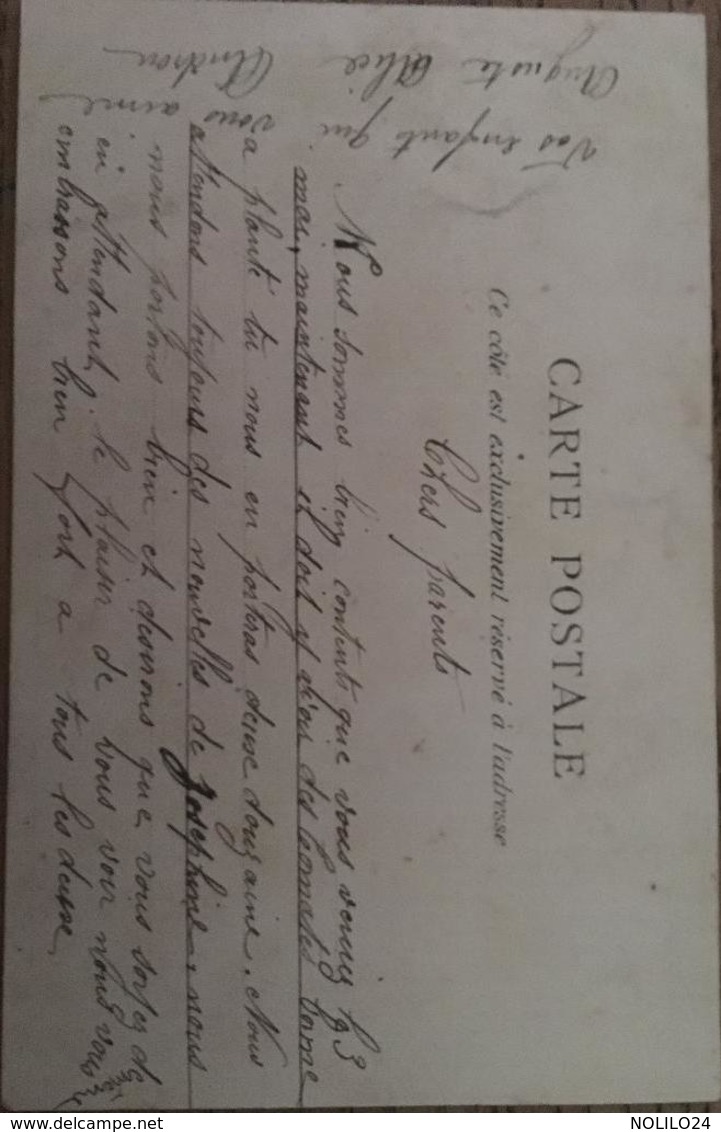 CARTE POSTALE
Ce côté est exclusivement réservé à l'adresse
Chers parents
Nous sommes bien contents que vous veniez le 3
mai, maintenant il doit y avoir des tomates bonne
a planté tu nous en porteras deuse dougaine. Nous
attendons toujours des nouvelles de Josephine, nous
nous portons bien et desirons que vous soyez de
en attendant le plaisir de vous voir nous vous
embrassons bien fort a tous les deuse
Vos enfants qui
vous aime
Auguste Alice
NOLILO24